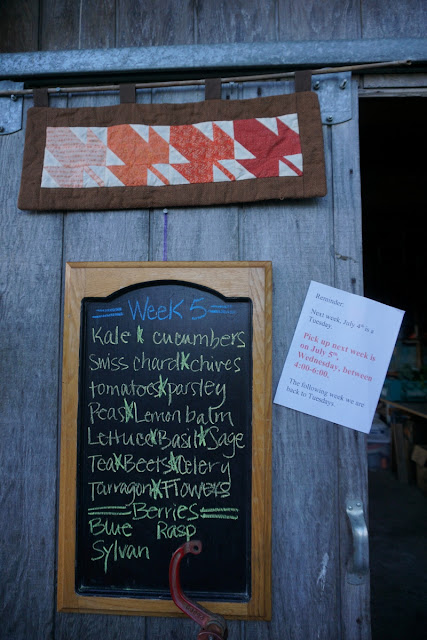 Week 5
Kale x cucumbers
Swiss chard x chives
tomatoes x parsley
Peas x Lemon balm
Lettuce x Basil x Sage
Tea x Beets x Celery
Tarragon x Flowers
Berries
Blue Rasp
Sylvan
Reminder:
Next week, July 4th is a
Tuesday.
Pick up next week is
on July 5th,
Wednesday, between
4:00-6:00.
The following week we are
back to Tuesdays.